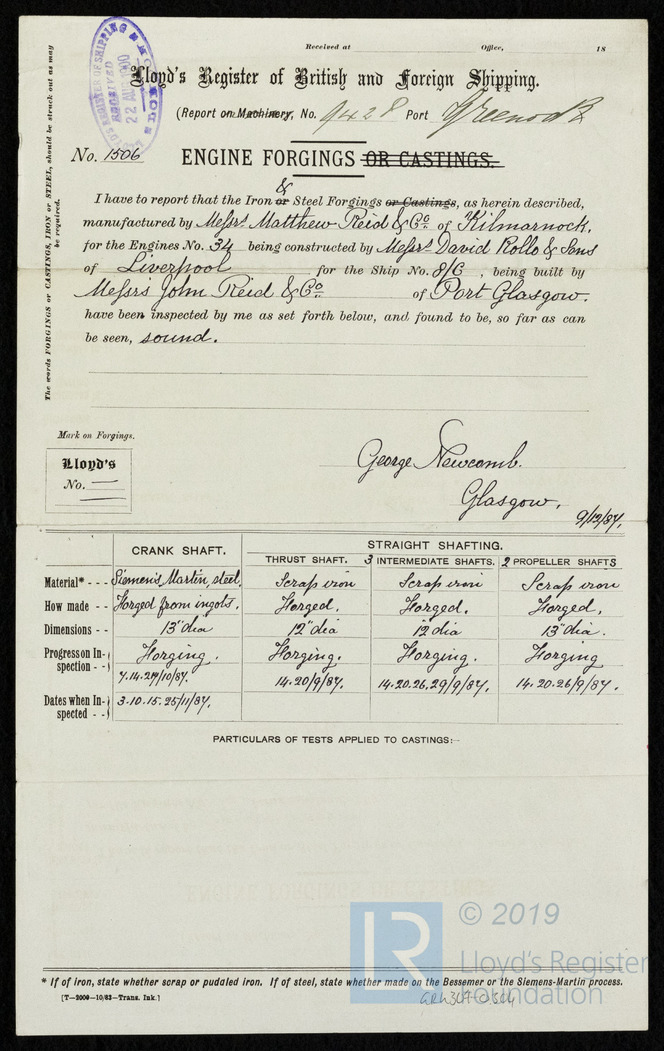 Received at Office, 18
Lloyd's Register of British and Foreign Shipping.
(Report on Machinery, No. 9428 Port Greenock
LLOYDS REGISTER OF SHIPPING
RECEIVED
22 AUG 1900
No. 1506 ENGINE FORGINGS OR CASTINGS.
&
I have to report that the Iron or Steel Forgings or Castings, as herein described,
manufactured by Messrs Matthew Reid & Co of Kilmarnock,
for the Engines No. 34 being constructed by Messrs David Rollo & Sons
of Liverpool for the Ship No. 8/G, being built by
Messrs John Reid & Co of Port Glasgow.
have been inspected by me as set forth below, and found to be, so far as can
be seen, sound.
The words FORGINGS or CASTINGS, IRON or STEEL, should be struck out as may
be required.
Mark on Forgings.
Lloyd's
No.
George Newcomb.
Glasgow,
9/12/87,
CRANK SHAFT. STRAIGHT SHAFTING.
THRUST SHAFT. 3 INTERMEDIATE SHAFTS. 2 PROPELLER SHAFTS
Material* - - - Siemens Martin, steel. Scrap iron Scrap iron Scrap iron
How made - - Forged from ingots. Forged. Forged. Forged.
Dimensions - - 13" dia 12" dia 12 dia 13" dia.
Progress on In-
spection - - Forging. Forging. Forging. Forging
7.14.27/10/87. 14.20/9/87. 14.20.26.29/9/87. 14.20.26/9/87.
Dates when In-
spected - - 3.10.15.25/11/87.
PARTICULARS OF TESTS APPLIED TO CASTINGS:-
LR © 2019
Lloyd's Register
Foundation
* If of iron, state whether scrap or pudaled iron. If of steel, state whether made on the Bessemer or the Siemens-Martin process.
[T—2000—10/83—Trans. Ink.]